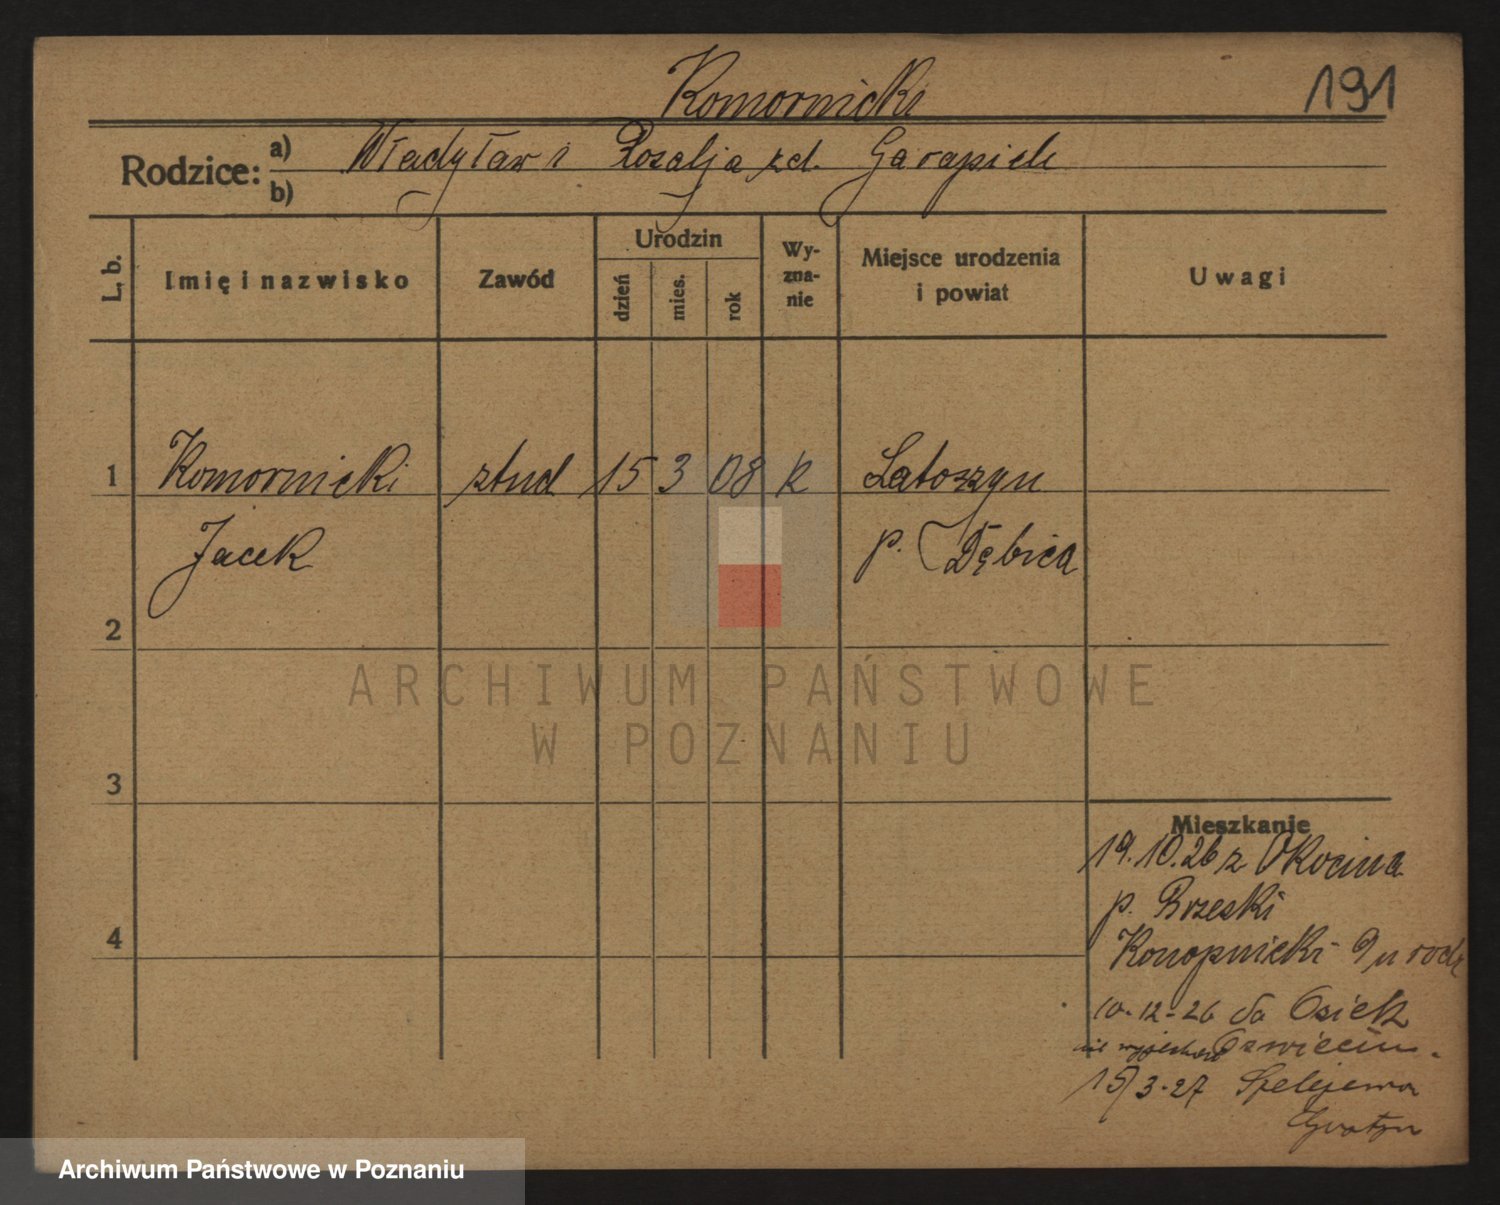 Komornicki
191
Rodzice:
a) Władysław i Rozalja zd. Garapich
b)
L. b.
Imię i nazwisko
Zawód
Urodzin
dzień
mies.
rok
Wy-
zna-
nie
Miejsce urodzenia
i powiat
Uwagi
1 Komornicki stud 15 3 08 k Latoszyn
Jacek p. Dębica
2
3
4
Mieszkanie
19.10.26 z Okocima
p. Brzeski
Konopnicki 9 u rodz
10.12-26 do Osiek
nie Oświęcim.
15/3.27
ARCHIWUM PAŃSTWOWE
W POZNANIU
Archiwum Państwowe w Poznaniu